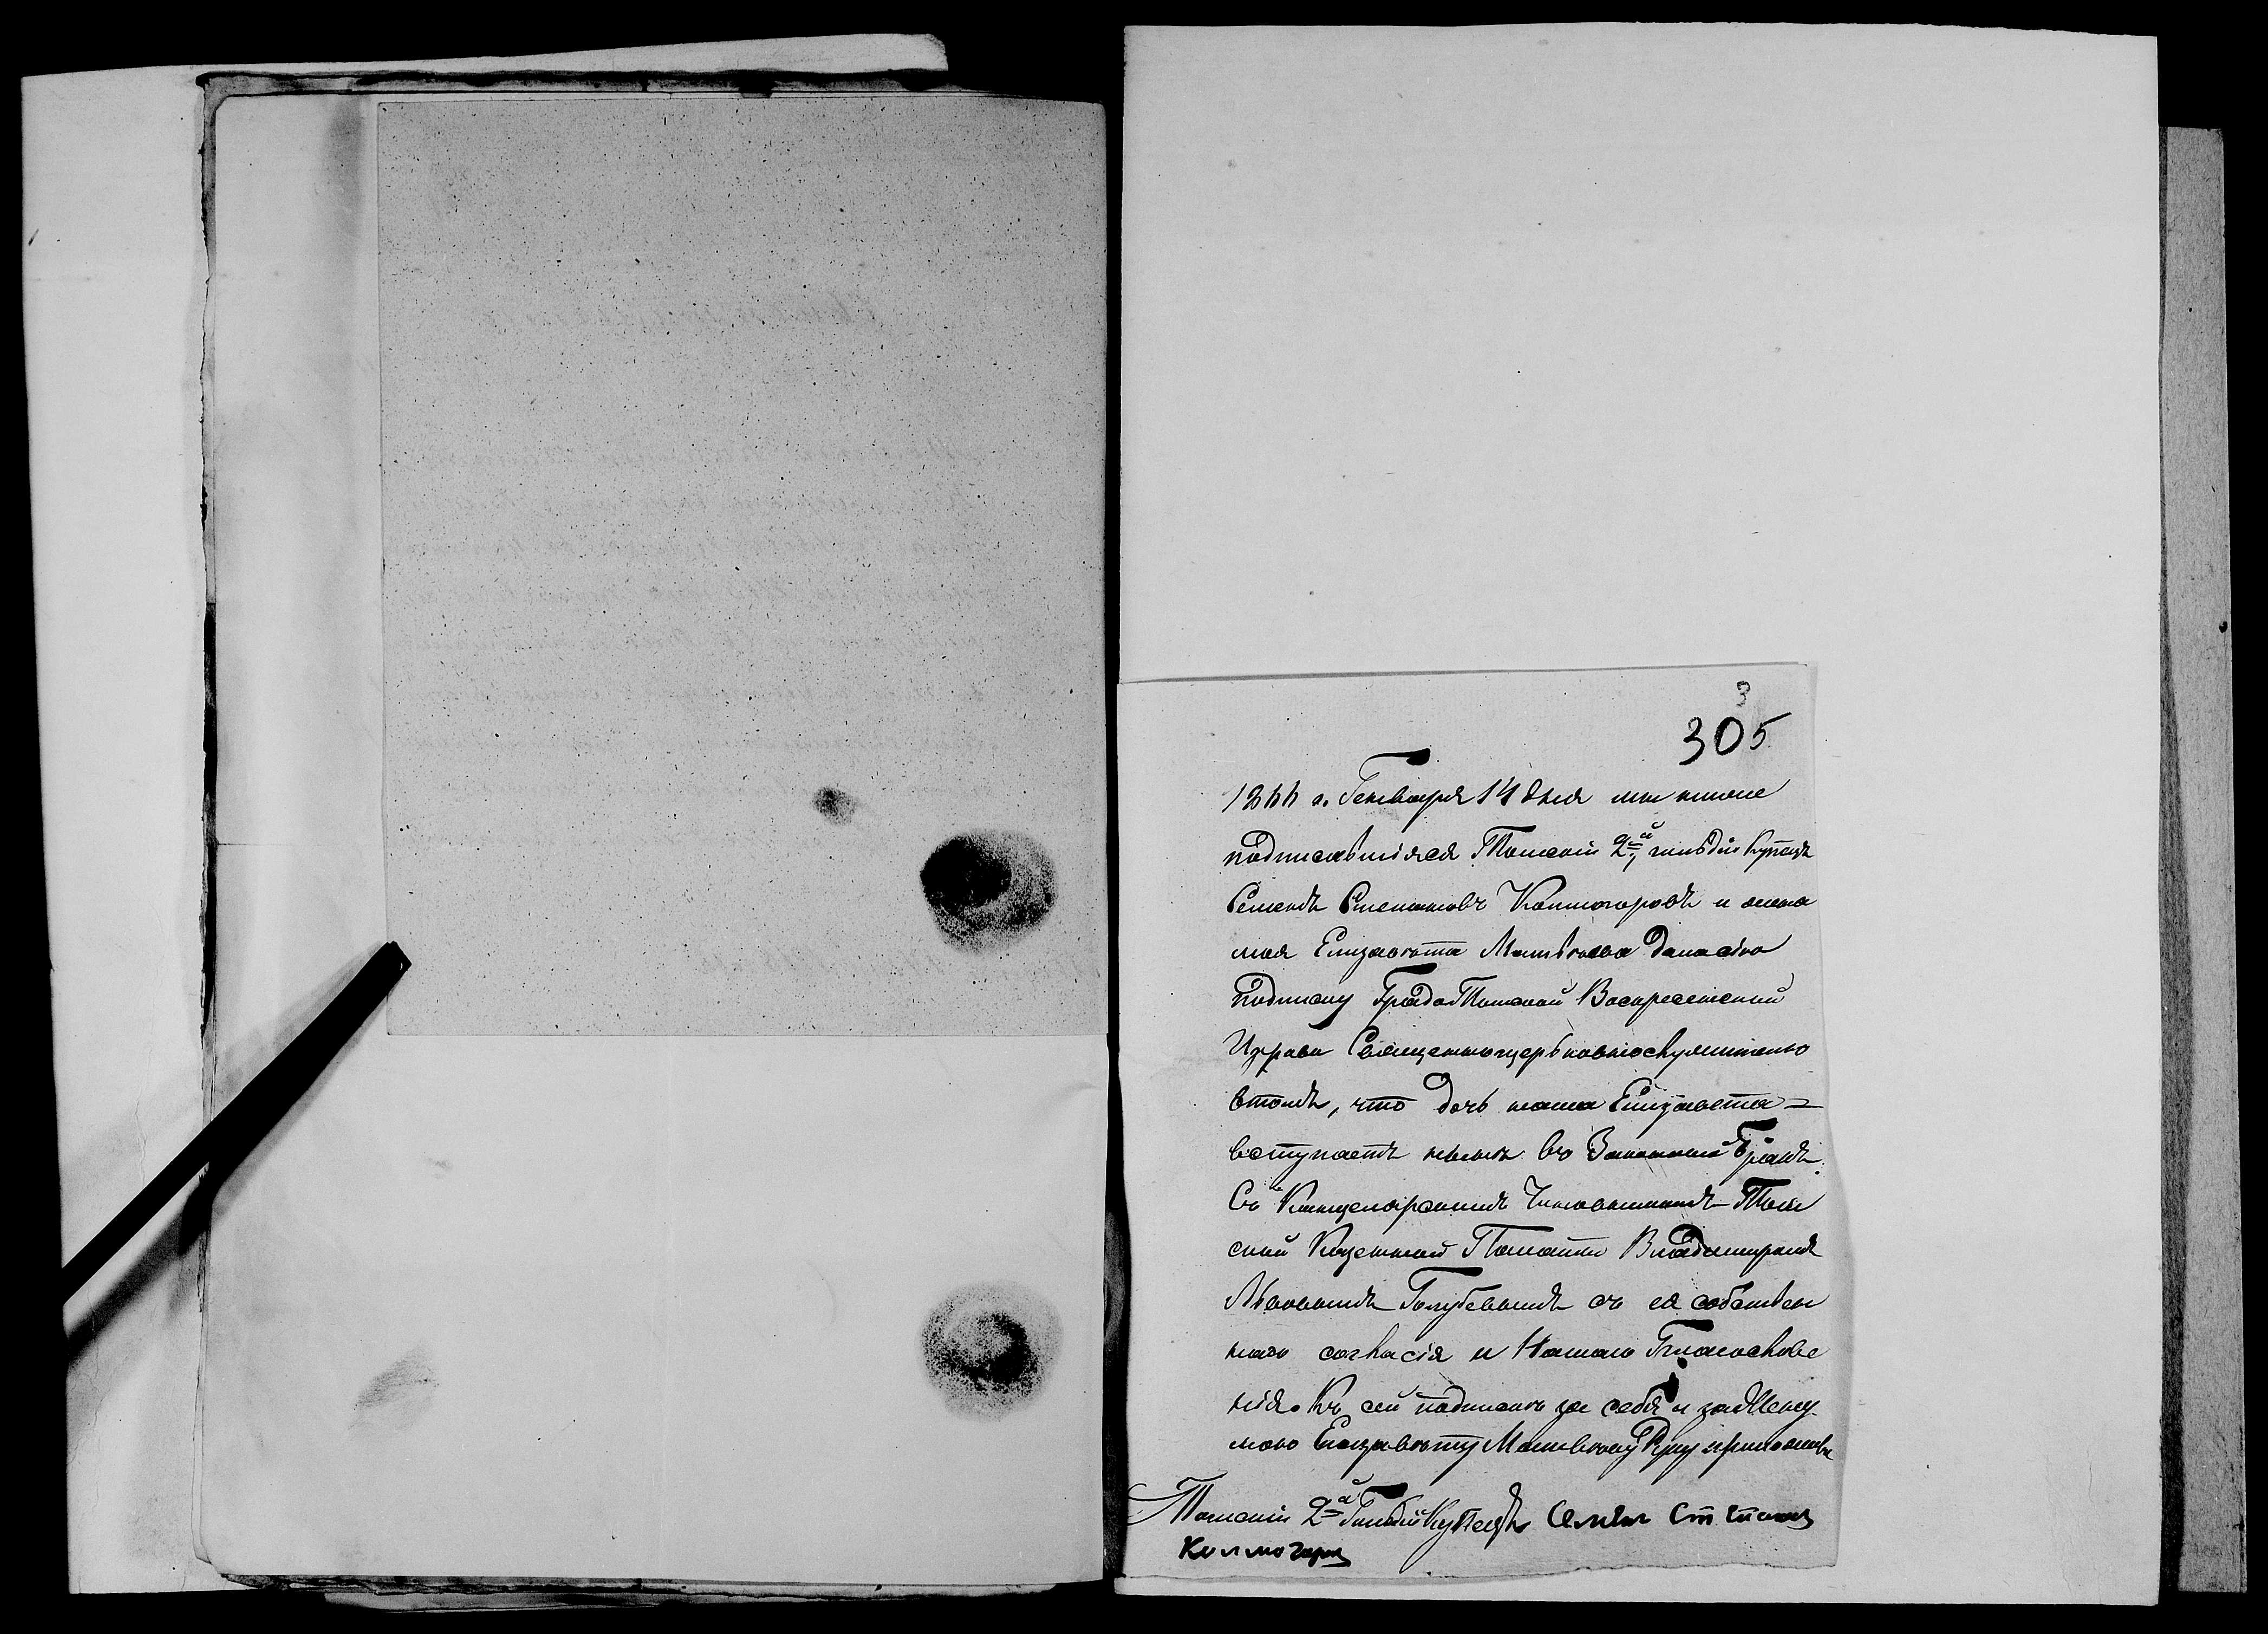 3
305
1866 г. Генваря 14 дня мы ниже
подписавшіяся Томскій 2й гильдіи купецъ
Семенъ Степановъ Колмогоровъ и жена
моя Елизавета Матвѣева дали сію
подписку Градо Томской Воскресенской
Церкви Священноцерьковнослужителямъ
втомъ, что дочь наша Елизавета
вступаетъ нынѣ въ Законный бракъ
Съ Канцелярскимъ Чиновникомъ Том
ской Казенной Палаты Владимиромъ
Львовымъ Голубевымъ съ ея собствен
наго согласія и Нашего Благослове
нія. Къ сей подпискѣ за себя и за жену
мою Елизавѣту Матвѣеву руку приложилъ
Томскій 2й Гильдіи Купецъ Семен Степанов
Колмогоров